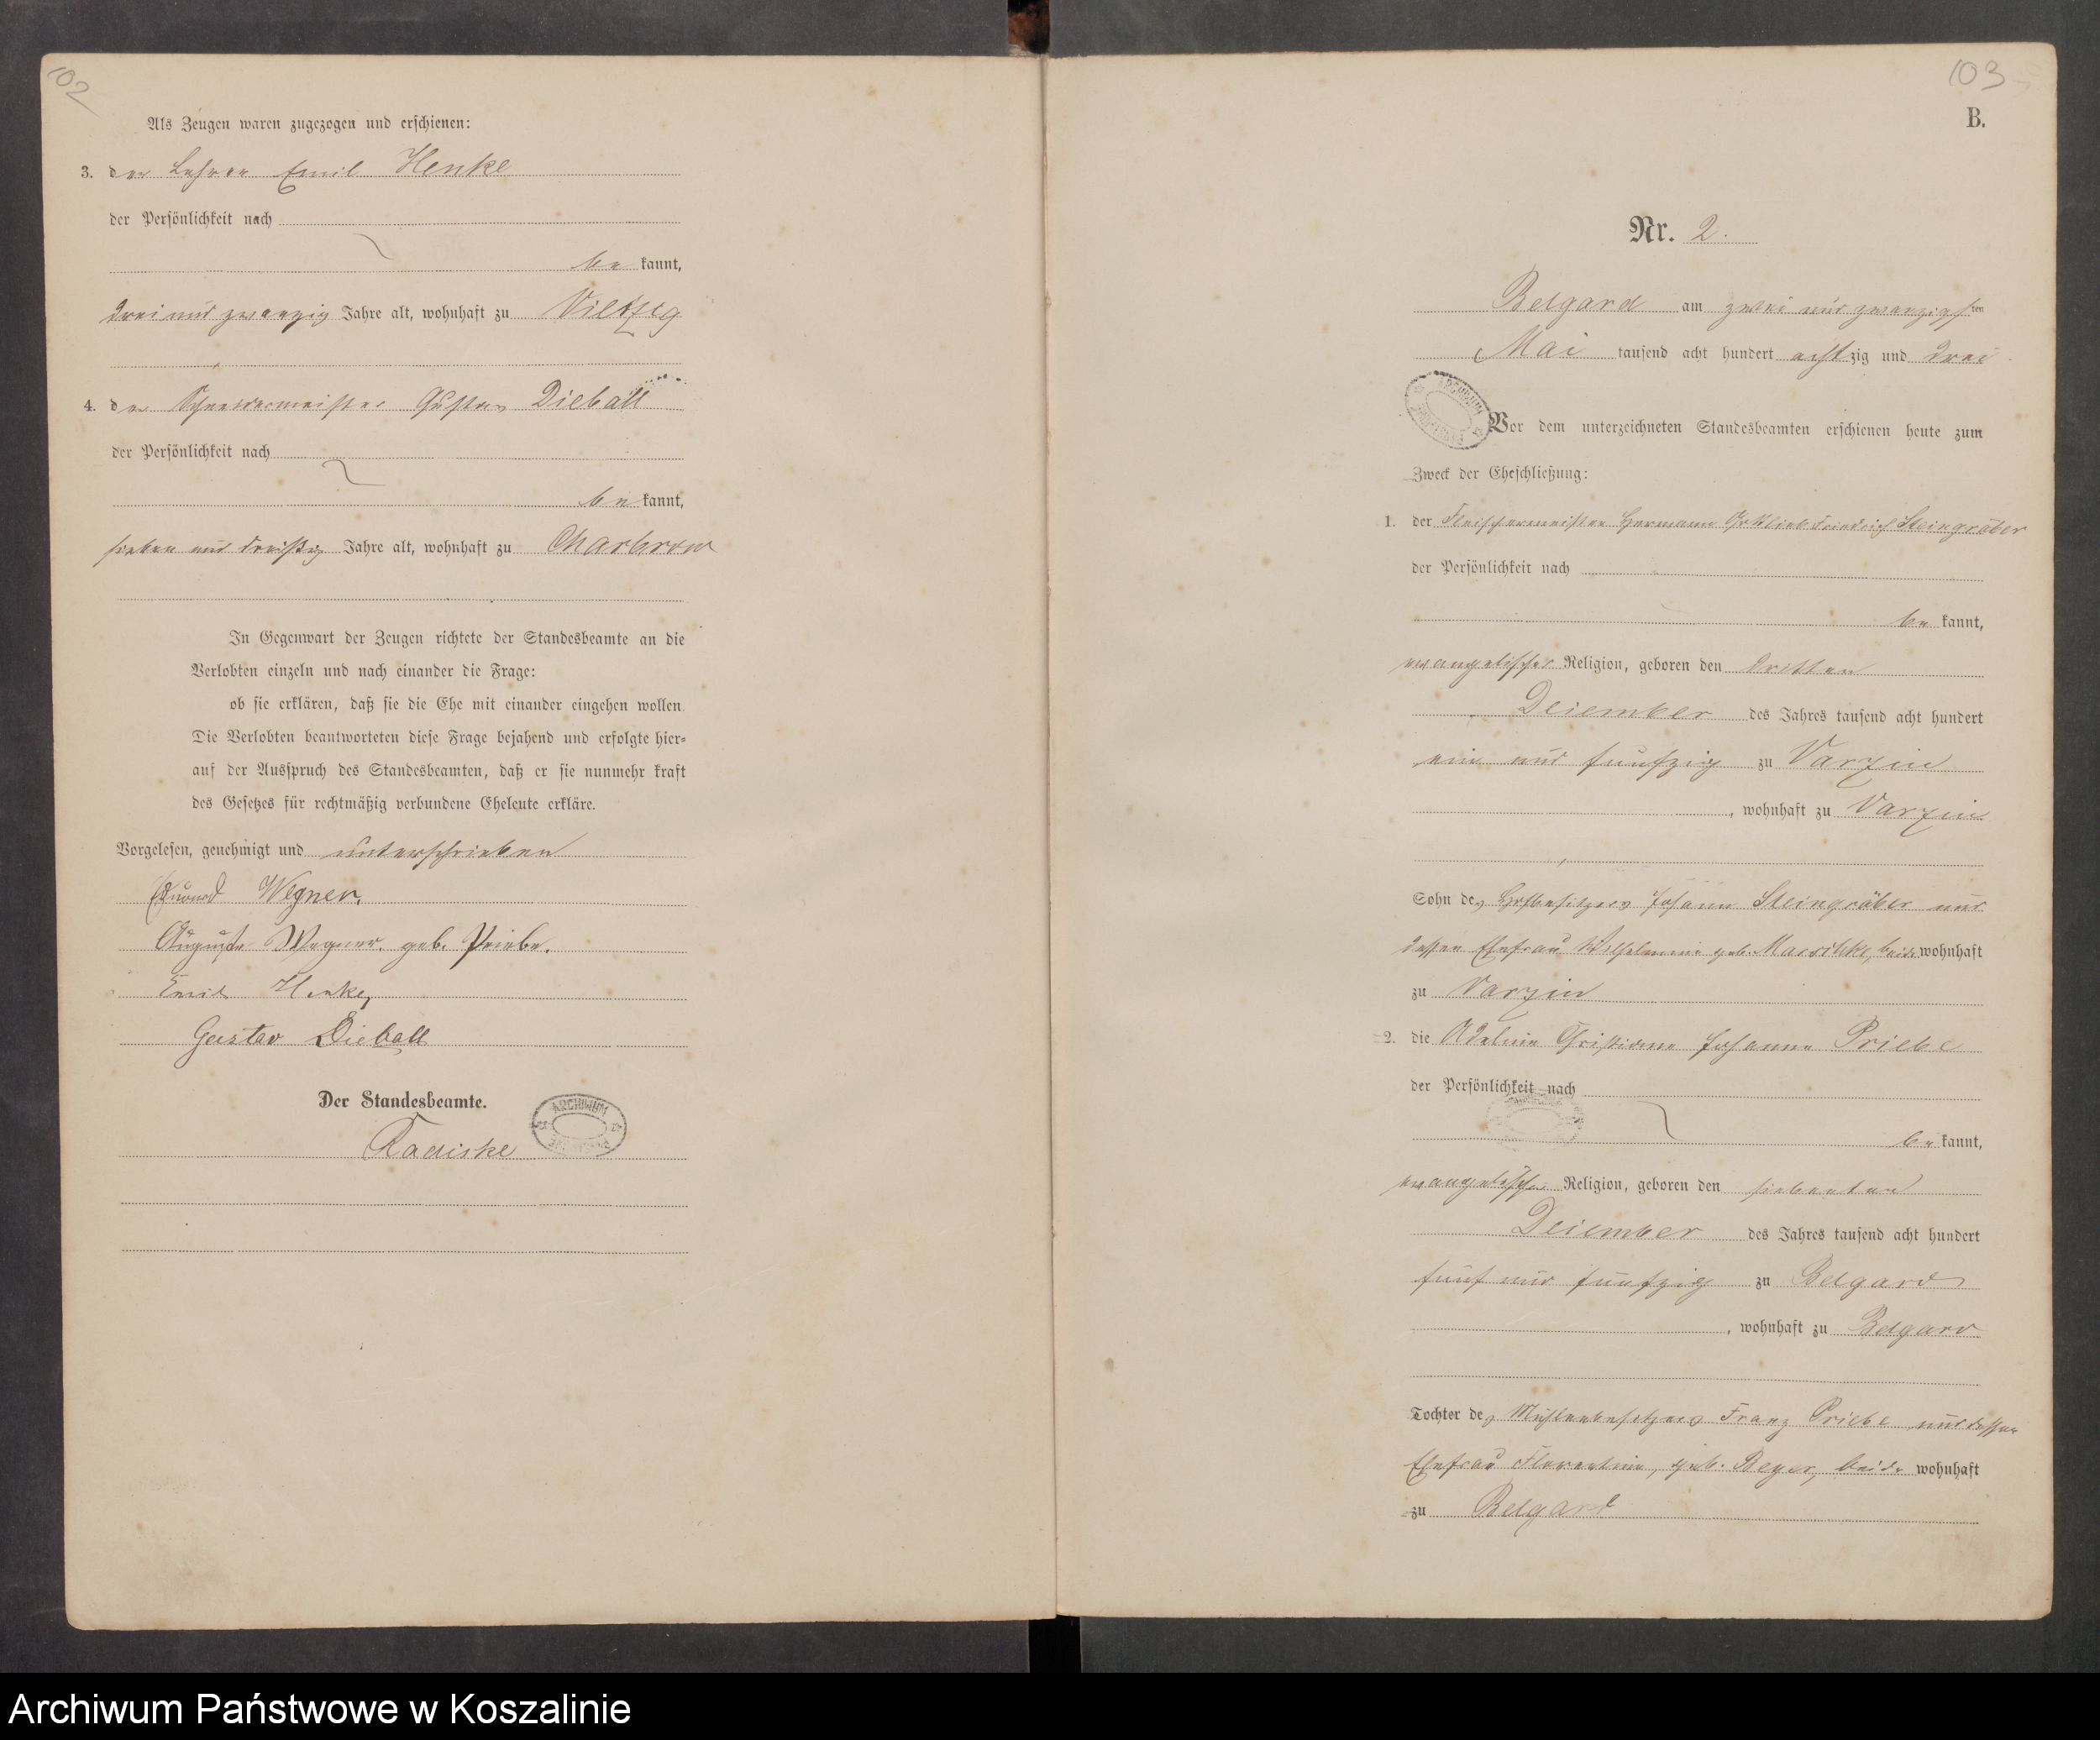 102
Als Zeugen waren zugezogen und erschienen:
3. der Lehrer Emil Henke
der Persönlichkeit nach
be kannt,
drei und zwanzig Jahre alt, wohnhaft zu Vietzig
4. der Schneidermeister Gustav Dieball
der Persönlichkeit nach
be kannt,
sieben und dreißig Jahre alt, wohnhaft zu Charbrow
In Gegenwart der Zeugen richtete der Standesbeamte an die
Verlobten einzeln und nach einander die Frage:
ob sie erklären, daß sie die Ehe mit einander eingehen wollen.
Die Verlobten beantworteten diese Frage bejahend und erfolgte hier-
auf der Ausspruch des Standesbeamten, daß er sie nunmehr kraft
des Gesetzes für rechtmäßig verbundene Eheleute erkläre.
Vorgelesen, genehmigt und unterschrieben
Eduard Wegner.
Auguste Wegner. geb. Priebe.
Emil Henke,
Gustav Dieball
Der Standesbeamte.
Radiske
ARCHIWUM
103
B.
Nr. 2.
Belgard am zwei und zwanzigsten
Mai tausend acht hundert achtzig und drei.
ARCHIWUM
Vor dem unterzeichneten Standesbeamten erschienen heute zum
Zweck der Eheschließung:
1. der Fleischermeister Hermann Gottlieb Friedrich Steingräber
der Persönlichkeit nach
be kannt,
evangelischer Religion, geboren den dritten
Dezember des Jahres tausend acht hundert
ein und funfzig zu Varzin
, wohnhaft zu Varzin
Sohn des Hofbesitzers Johann Steingräber und
dessen Ehefrau Wilhelmine geb. beide wohnhaft
zu Varzin
2. die Adeline Christiane Johanna Priebe
der Persönlichkeit nach
be kannt,
evangelischer Religion, geboren den siebenten
Dezember des Jahres tausend acht hundert
fünf und funfzig zu Belgard
, wohnhaft zu Belgard
Tochter des Mühlenbesitzers Franz Priebe und dessen
Ehefrau Florentine, geb. Beyer, beide wohnhaft
zu Belgard
Archiwum Państwowe w Koszalinie